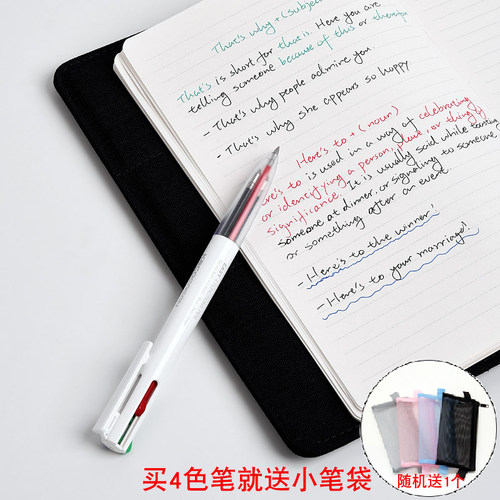 That's why + (subject
That's is short for that is. Here you are
telling someone because of this or therefore
- That's why people admire you
- That's why she appears so happy
Here's to + (noun)
Here's to is used in a way of celebrating
or identifying a person, place, or thing's
significance. It is usually said while toasting
someone at dinner, or signaling to someone
or something after an event.
- Here's to the winner!
- Here's to your marriage!
买4色笔就送小笔袋
随机送1个